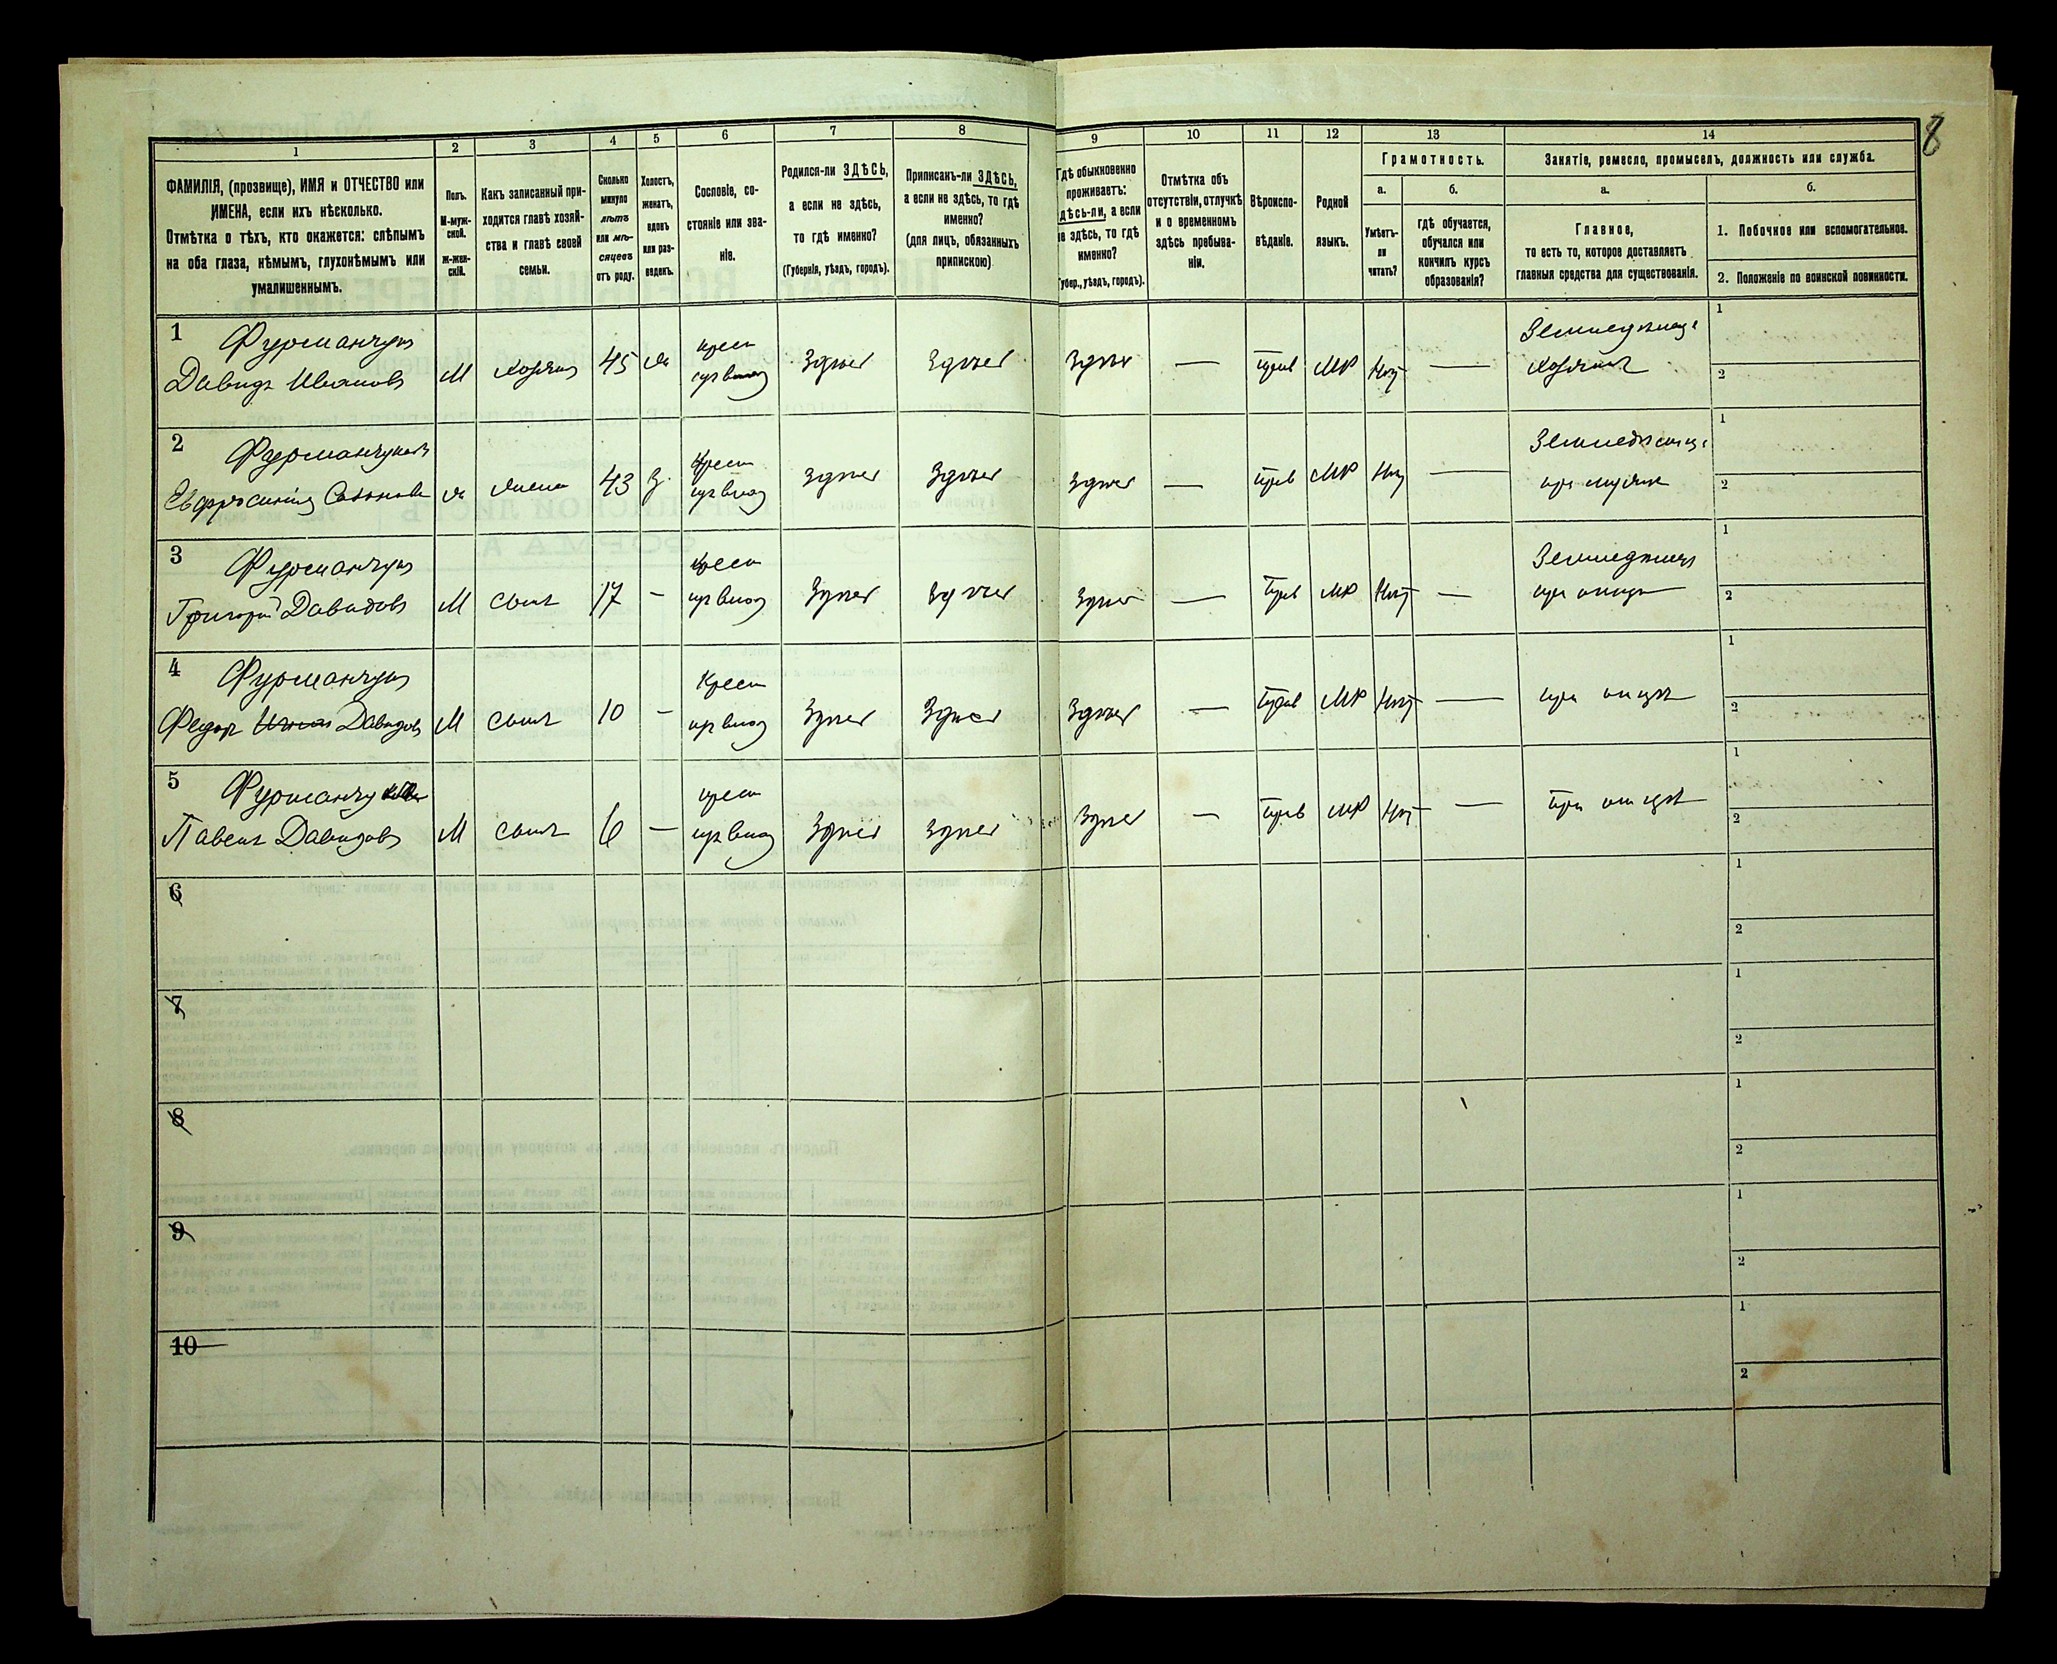 8
1
2
3
4
5
6
7
8
9
10
11
12
13
14
ФАМИЛІЯ, (прозвище), ИМЯ и ОТЧЕСТВО или
ИМЕНА, если ихъ нѣсколько.
Отмѣтка о тѣхъ, кто окажется: слѣпымъ
на оба глаза, нѣмымъ, глухонѣмымъ или
умалишеннымъ.
Полъ.
М-муж-
ской.
Ж-жен-
скій.
Какъ записанный при-
ходится главѣ хозяй-
ства и главѣ своей
семьи.
Сколько
минуло
лѣтъ
или мѣ-
сяцевъ
отъ роду.
Холостъ,
женатъ,
вдовъ
или раз-
веденъ.
Сословіе, со-
стояніе или зва-
ніе.
Родился-ли ЗДѢСЬ,
а если не здѣсь,
то гдѣ именно?
(Губернія, уѣздъ, городъ).
Приписанъ-ли ЗДѢСЬ,
а если не здѣсь, то гдѣ
именно?
(для лицъ, обязанныхъ
припискою)
Гдѣ обыкновенно
проживаетъ:
здѣсь-ли, а если
не здѣсь, то гдѣ
именно?
(Губер., уѣздъ, городъ).
Отмѣтка объ
отсутствіи, отлучкѣ
и о временномъ
здѣсь пребыва-
ніи.
Вѣроиспо-
вѣданіе.
Родной
языкъ.
Грамотность.
а.
б.
Умѣетъ-
ли
читать?
гдѣ обучается,
обучался или
кончилъ курсъ
образованія?
Занятіе, ремесло, промыселъ, должность или служба.
а.
б.
Главное,
то есть то, которое доставляетъ
главныя средства для существованія.
1. Побочное или вспомогательное.
2. Положеніе по воинской повинности.
1 Фурманчукъ
Давидъ Ивановъ М хозяинъ 45 ж крест здѣсь здѣсь здѣсь — прав МР нѣт — Земледѣлецъ
хозяинъ
1
2
2 Фурманчукова
Евфросинія ж жена 43 з. крест здѣсь здѣсь здѣсь — прав МР нѣт —
при мужѣ
1
2
3 Фурманчукъ
Григорій Давидовъ М сынъ 17 — крест здѣсь здѣсь здѣсь — прав МР нѣт — Земледѣлецъ
при отцѣ
1
2
4 Фурманчукъ
Федоръ Давидовъ М сынъ 10 — крест здѣсь здѣсь здѣсь — прав МР нѣт — при отцѣ
1
2
5 Фурманчукъ
Павелъ Давидовъ М сынъ 6 — крест здѣсь здѣсь здѣсь — прав МР нѣт — при отцѣ
1
2
6
1
2
7
1
2
8
1
2
9
1
2
10
1
2